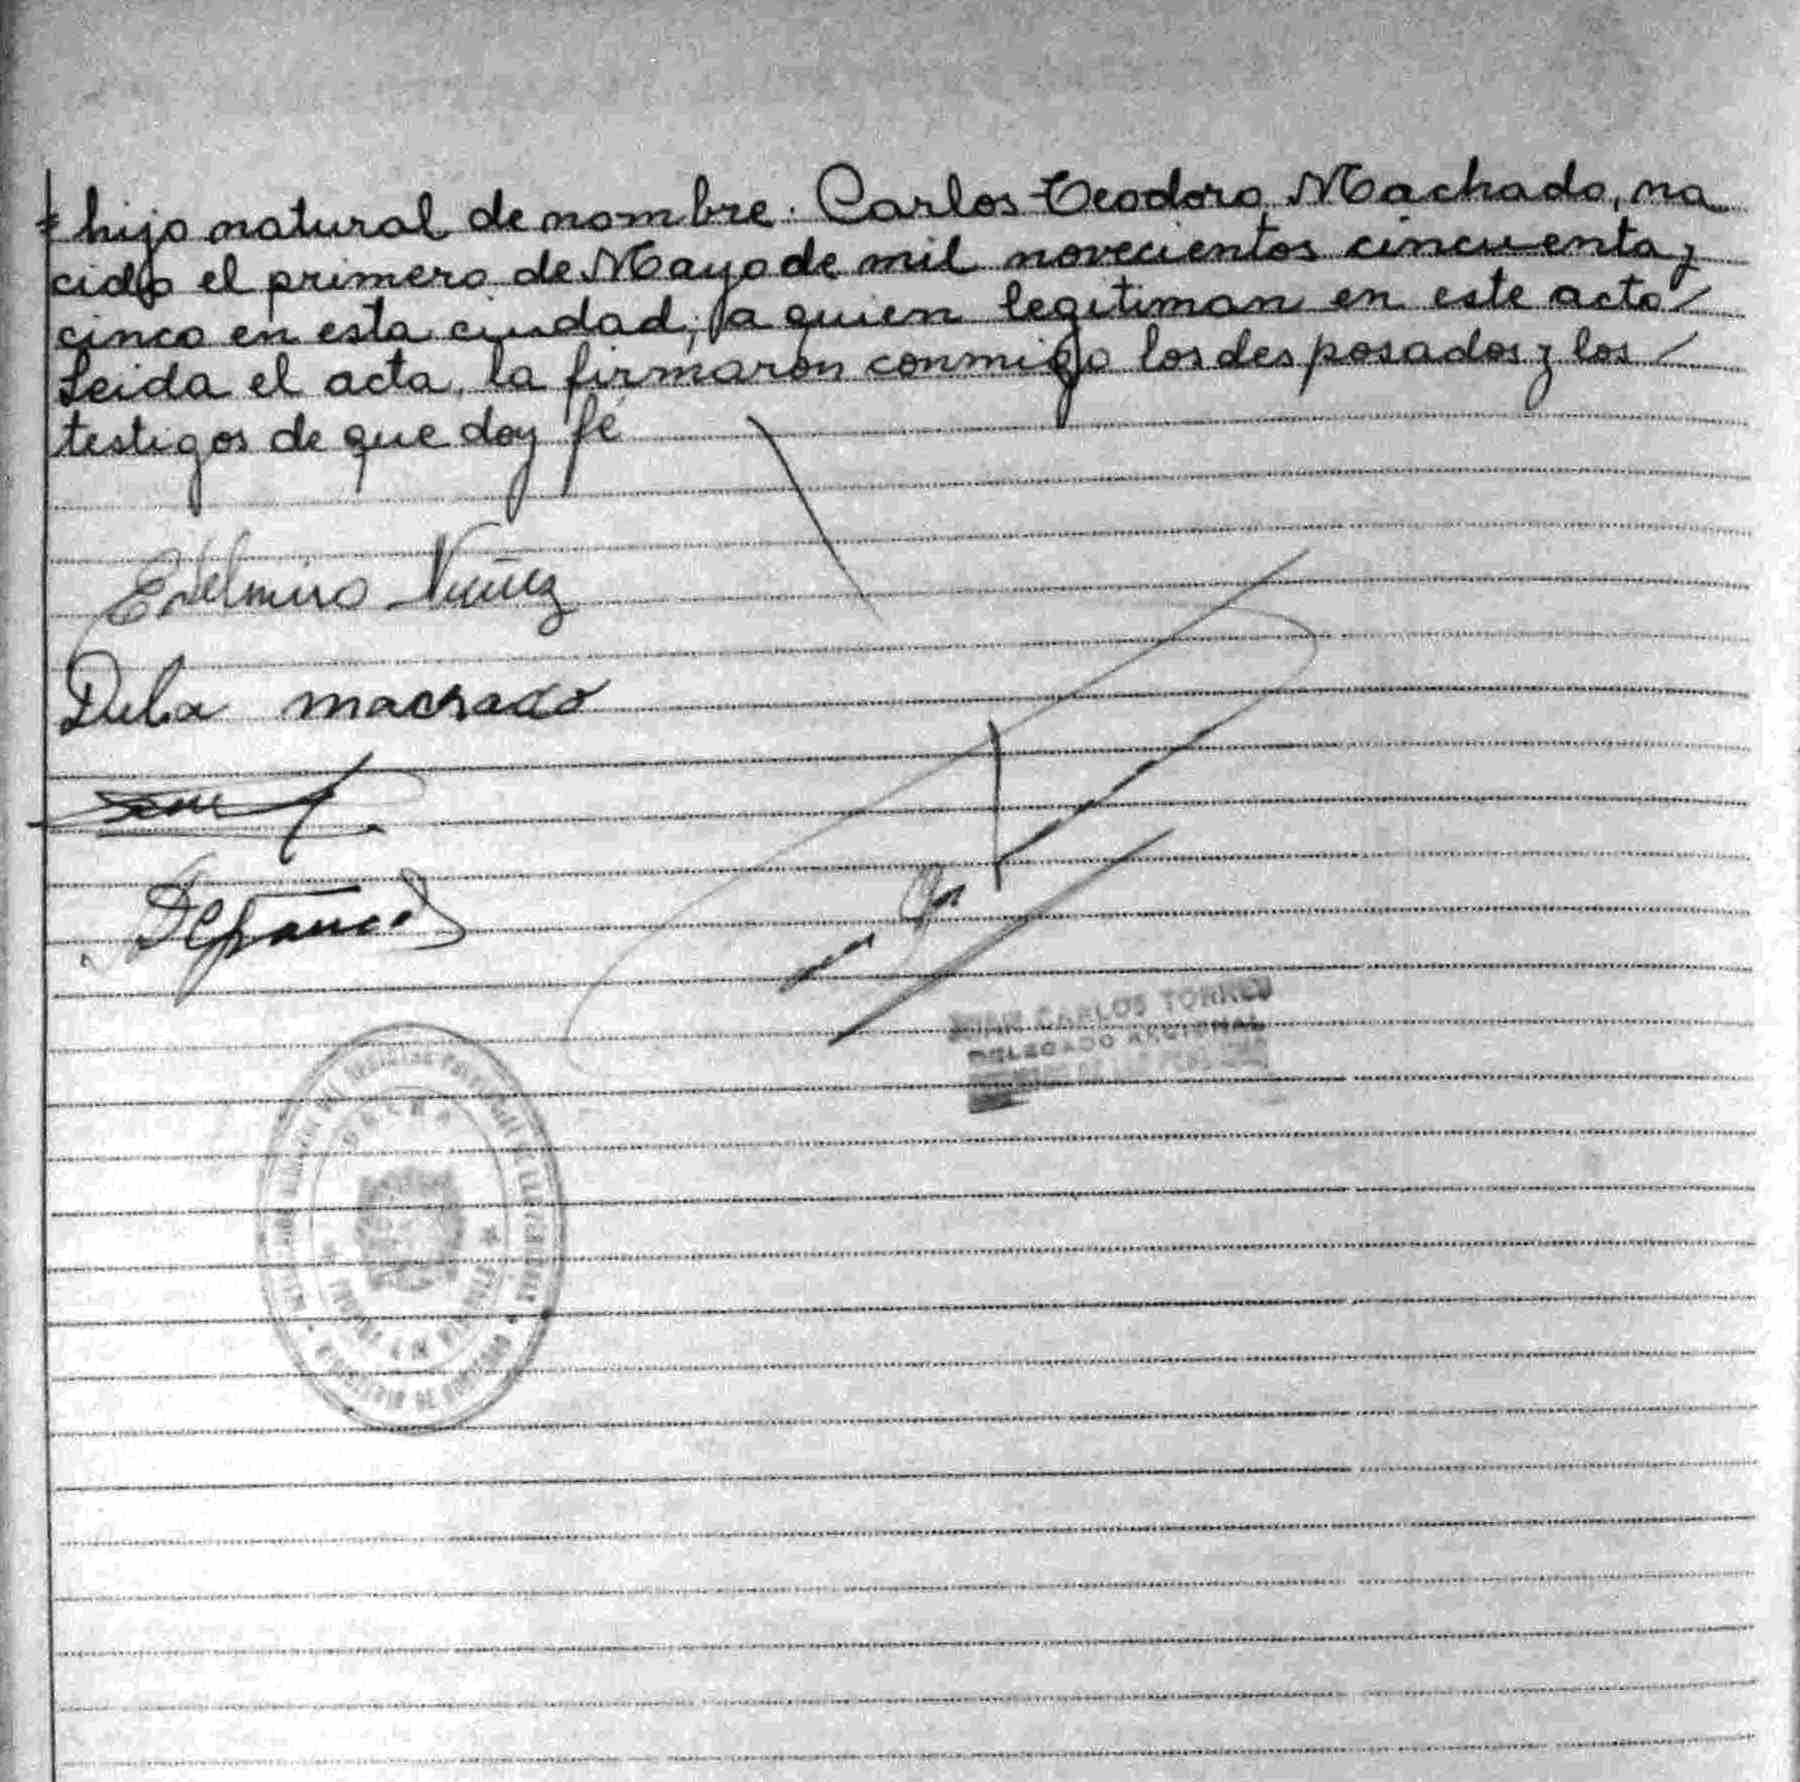 hijo natural de nombre. Carlos Teodoro Machado, na
cido el primero de Mayo de mil novecientos cincuenta y
cinco en esta ciudad; a quien legitiman en este acto
Leida el acta, la firmaron conmigo los desposados y los
testigos de que doy fé
Edelmiro Nuñez
Delia machado
JUAN CARLOS TORRES
DELEGADO REGIONAL